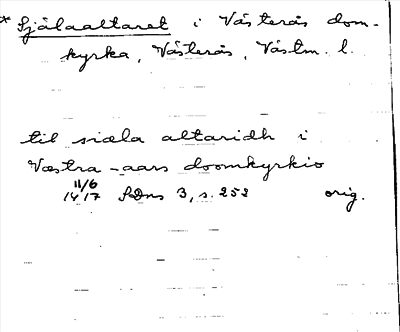 * Själaaltaret i Västerås dom-
kyrka, Västerås, Västm. l.
til siæla altaridh i
Væstra-aars doomkyrkio
11/6
1417 SDns 3, s. 252 orig.